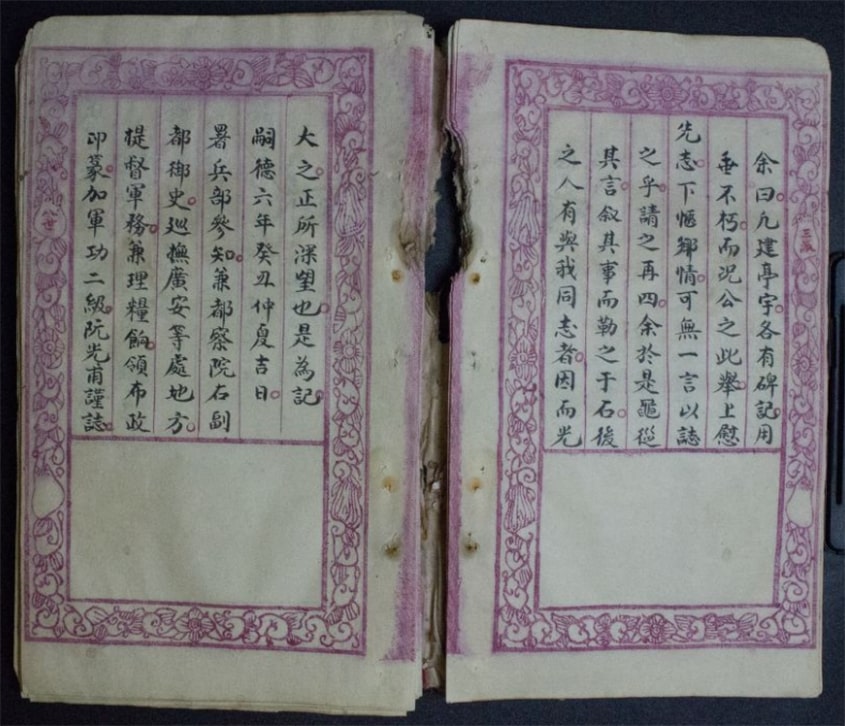 余曰凡建亭宇各有碑記用
垂不朽而况公之此舉上慰
先志下愜鄉情可無一言以誌
之乎請之再四余於是黽從
其言叙其事而勒之于石後
之人有與我同志者因而光
大之正所深望也是為記
嗣德六年癸丑仲夏吉日
署兵部參知兼都察院右副
都御史巡撫廣安等處地方
提督軍務兼理糧餉領布政
印篆加軍功二級阮光甫謹誌